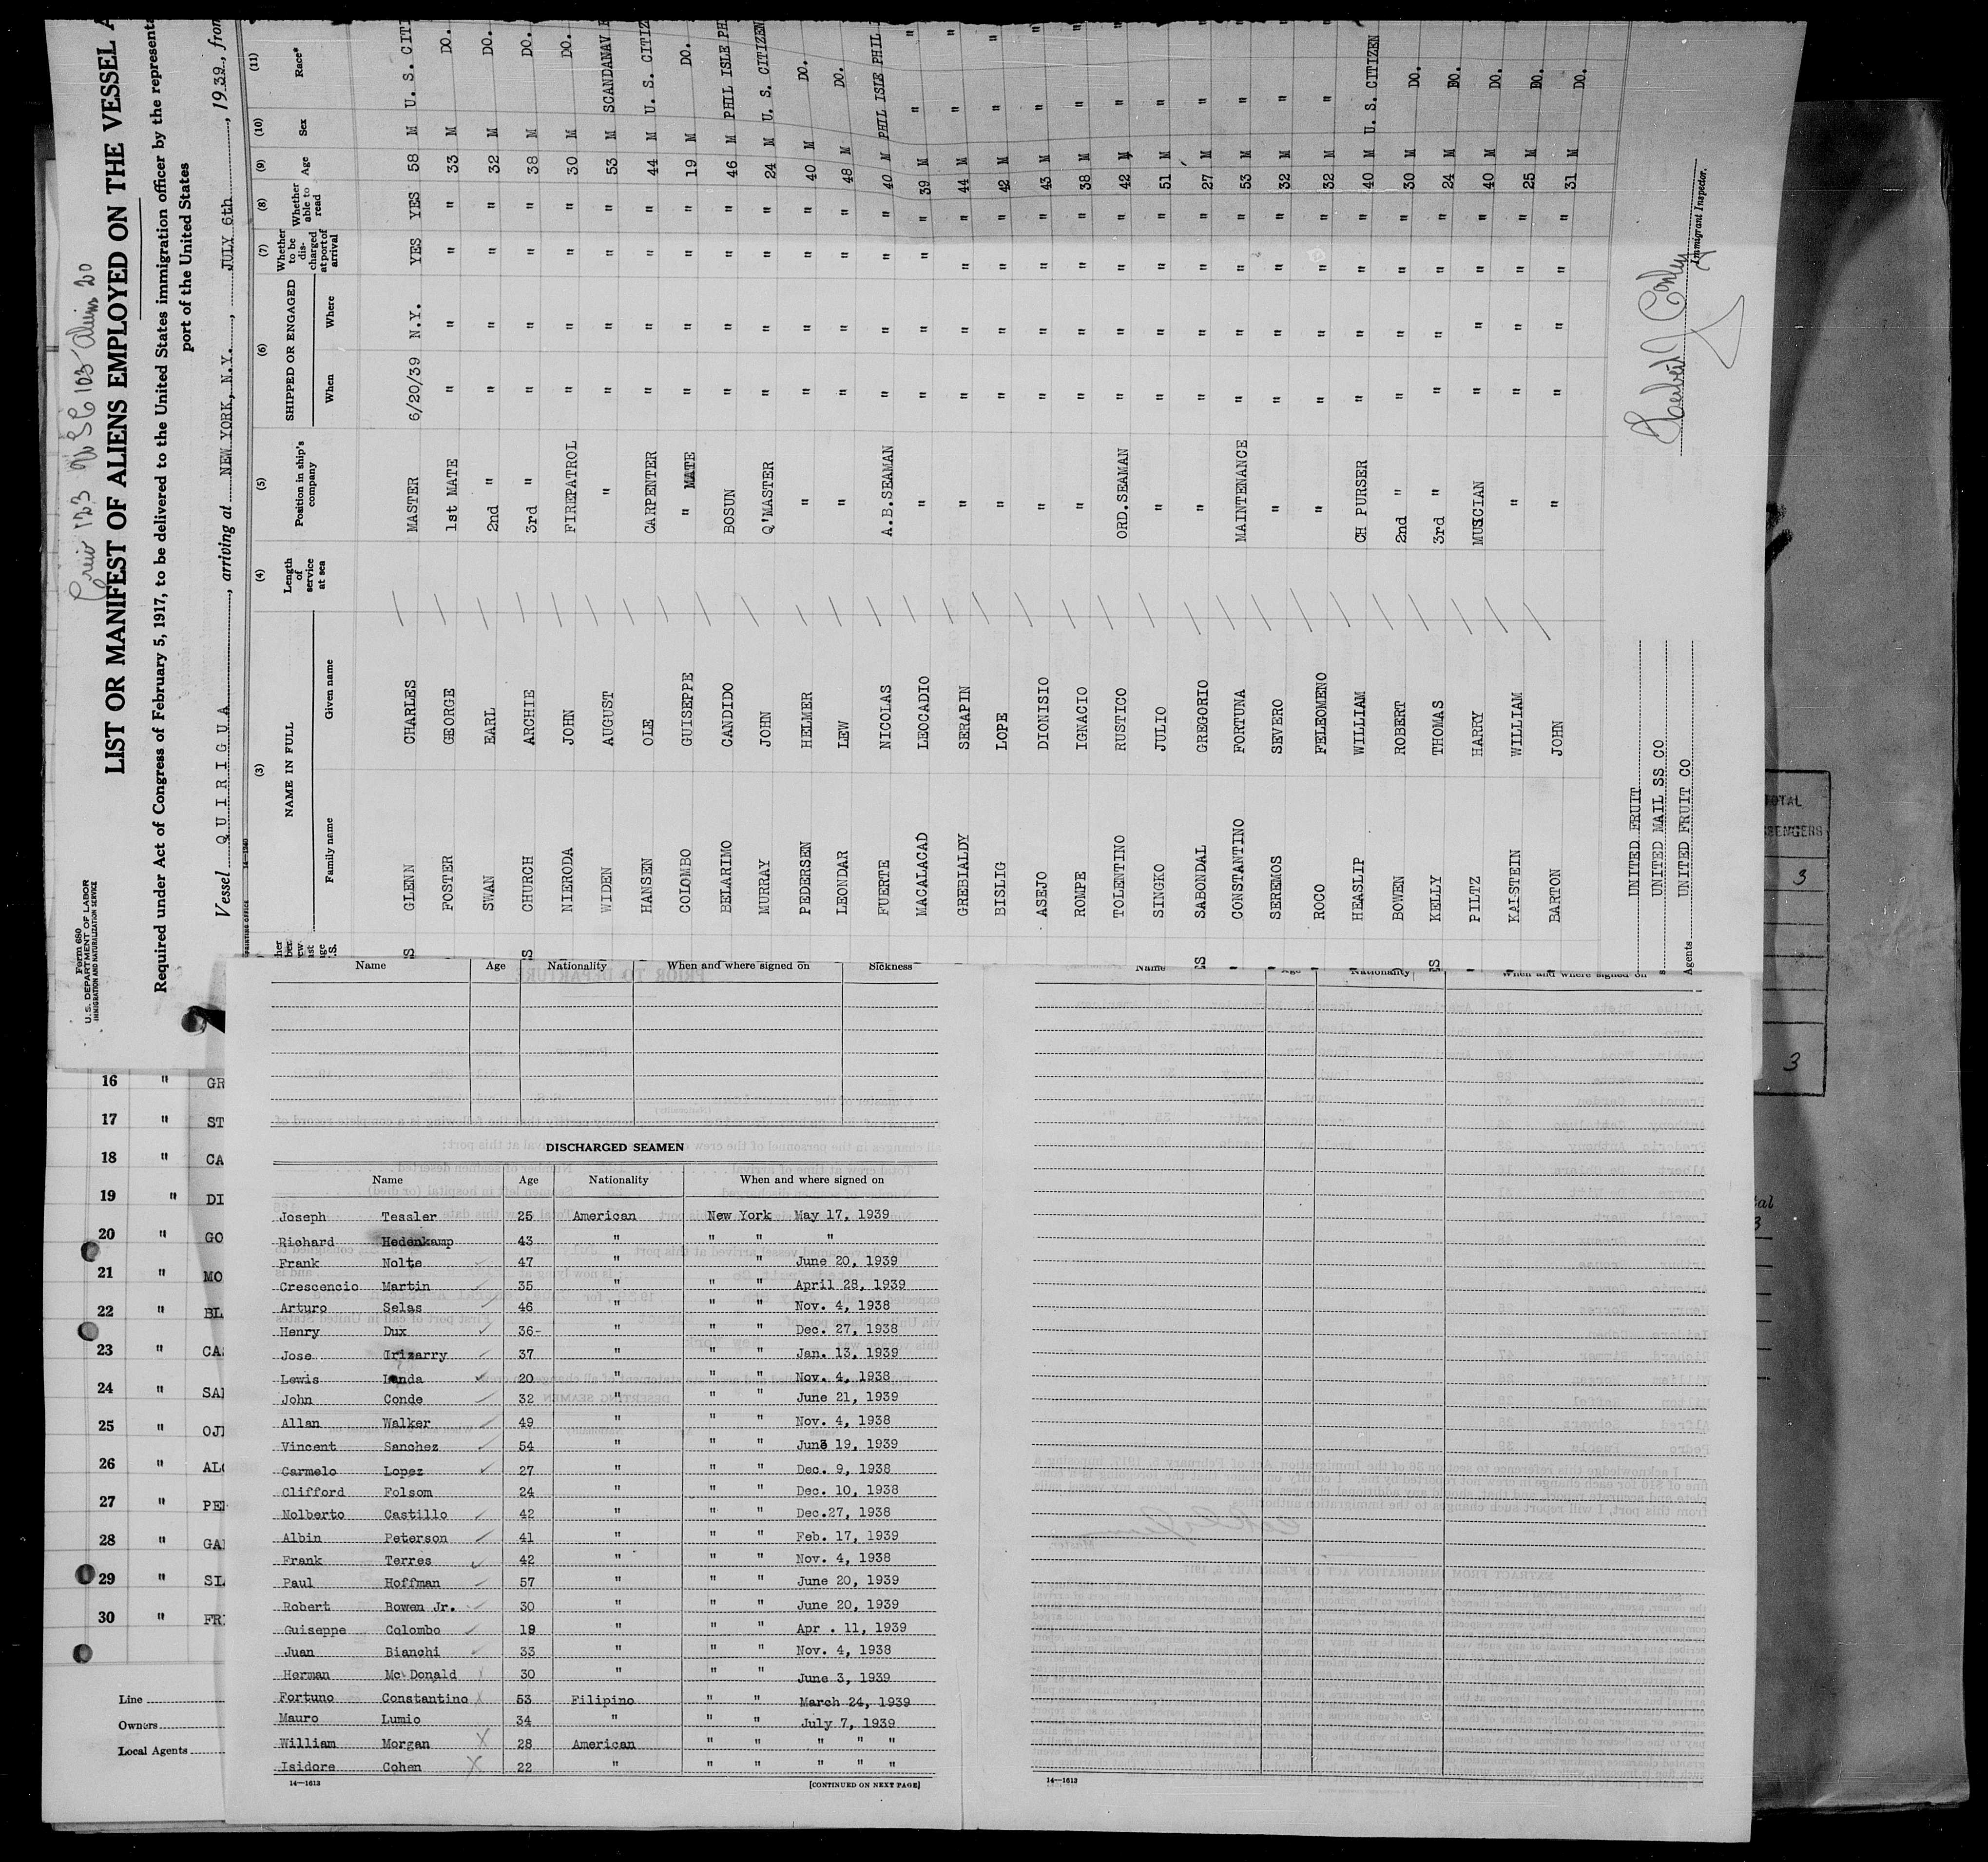 Crew 123 USC 103 Aliens 20
Form 680
U. S. DEPARTMENT OF LABOR
IMMIGRATION AND NATURALIZATION SERVICE
LIST OR MANIFEST OF ALIENS EMPLOYED ON THE VESSEL A
Required under Act of Congress of February 5, 1917, to be delivered to the United States immigration officer by the representa
port of the United States
Vessel QUIRIGUA, arriving at NEW YORK, N.Y., JULY 6th, 1939, from
(3) (4) (5) (6) (7) (8) (9) (10) (11)
NAME IN FULL Length of service at sea Position in ship's company SHIPPED OR ENGAGED Whether to be discharged at port of arrival Whether able to read Age Sex Race*
Family name Given name When Where
GLENN CHARLES MASTER 6/20/39 N.Y. YES YES 58 M U. S. CIT
FOSTER GEORGE 1st MATE " " " " 33 M DO.
SWAN EARL 2nd " " " " " 32 M DO.
CHURCH ARCHIE 3rd " " " " " 38 M DO.
NIERODA JOHN FIREPATROL " " " " 30 M DO.
WIDEN AUGUST " " " " " 53 M SCANDANAV
HANSEN OLE CARPENTER " " " " 44 M U. S. CITIZ
COLOMBO GUISEPPE " MATE " " " " 19 M DO.
BELARIMO CANDIDO BOSUN " " " " 46 M PHIL ISLE PH
MURRAY JOHN Q'MASTER " " " " 24 M U. S. CITIZEN
PEDERSEN HELMER " " " " " 40 M DO.
LEONDAR LEW " " " " " 48 M DO.
FUERTE NICOLAS A.B.SEAMAN " " " " 40 M PHIL ISLE PHIL
MACALACAD LEOCADIO " " " " " 39 M " "
GREBIALDY SERAPIN " " " " " 44 M " "
BISLIG LOPE " " " " " 42 M " "
ASEJO DIONISIO " " " " " 43 M " "
ROMPE IGNACIO " " " " " 38 M " "
TOLENTINO RUSTICO ORD.SEAMAN " " " " 42 M " "
SINGKO JULIO " " " " " 51 M " "
SABONDAL GREGORIO " " " " " 27 M " "
CONSTANTINO FORTUNA MAINTENANCE " " " " 53 M " "
SEREMOS SEVERO " " " " " 32 M " "
ROCO FELEOMENO " " " " " 32 M " "
HEASLIP WILLIAM CH PURSER " " " " 40 M U. S. CITIZEN
BOWEN ROBERT 2nd " " " " " 30 M DO.
KELLY THOMAS 3rd " " " " " 24 M DO.
PILTZ HARRY MUSICIAN " " " " 40 M DO.
KALSTEIN WILLIAM " " " " " 25 M DO.
BARTON JOHN " " " " " 31 M DO.
UNITED FRUIT
UNITED MAIL SS CO
Agents UNITED FRUIT CO
Immigrant Inspector.
Name Age Nationality When and where signed on Sickness
DISCHARGED SEAMEN
Name Age Nationality When and where signed on
Joseph Tessler 25 American New York May 17, 1939
Richard Hedenkamp 43 " " " "
Frank Nolte 47 " " June 20, 1939
Crescencio Martin 35 " " " April 28, 1939
Arturo Selas 46 " " " Nov. 4, 1938
Henry Dux 36- " " " Dec. 27, 1938
Jose Irizarry 37 " " " Jan. 13, 1939
Lewis Landa 20 " " " Nov. 4, 1938
John Conde 32 " " " June 21, 1939
Allan Walker 49 " " " Nov. 4, 1938
Vincent Sanchez 54 " " " June 19, 1939
Carmelo Lopez 27 " " " Dec. 9, 1938
Clifford Folsom 24 " " " Dec. 10, 1938
Nolberto Castillo 42 " " " Dec.27, 1938
Albin Peterson 41 " " " Feb. 17, 1939
Frank Terres 42 " " " Nov. 4, 1938
Paul Hoffman 57 " " " June 20, 1939
Robert Bowen Jr. 30 " " " June 20, 1939
Guiseppe Colombo 19 " " " Apr . 11, 1939
Juan Bianchi 33 " " " Nov. 4, 1938
Herman Mc Donald 30 " " " June 3, 1939
Fortuno Constantino 53 Filipino " " March 24, 1939
Mauro Lumio 34 " " " July 7, 1939
William Morgan 28 American " " " " "
Isidore Cohen 22 " " " " " "
14—1613 [CONTINUED ON NEXT PAGE]
Name Age Nationality When and where signed on
14—1613
16 " GR
17 " ST
18 " CA
19 " DI
20 " GO
21 " MO
22 " BL
23 " CA
24 " SA
25 " OJ
26 " AL
27 " PE
28 " GA
29 " SI
30 " FR
Line
Owners
Local Agents
TOTAL
3
3